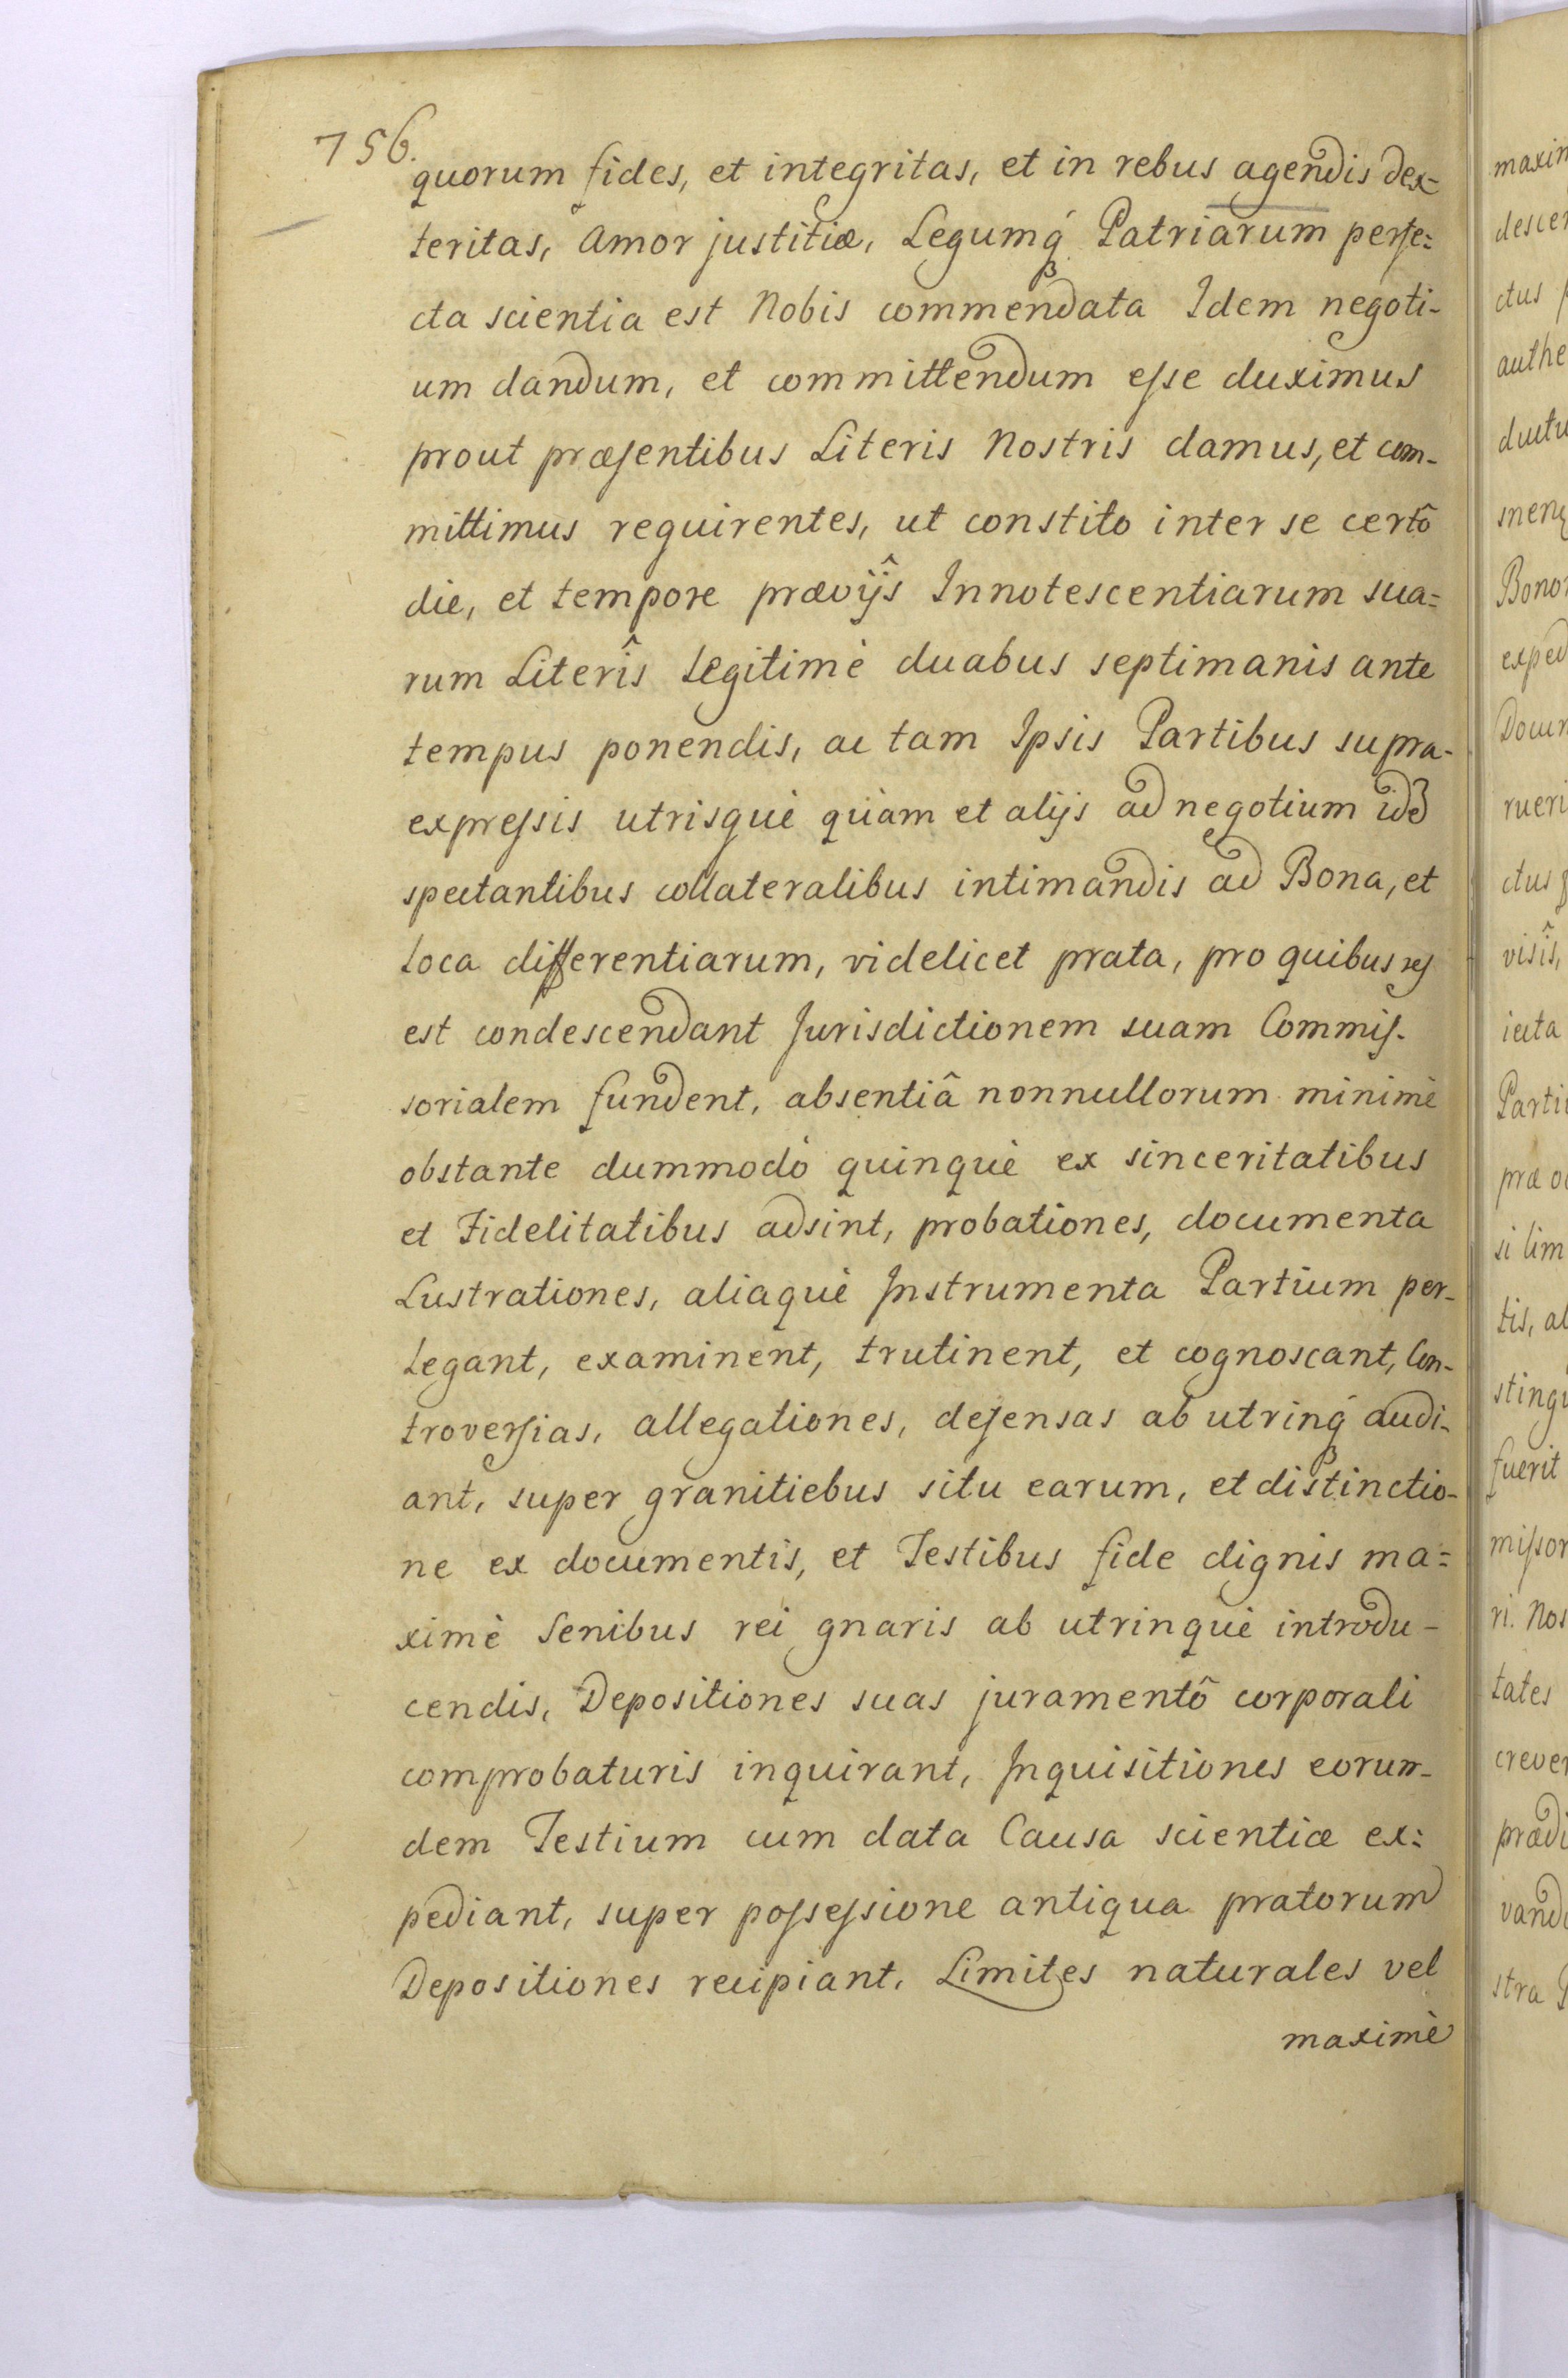 756.
quorum fides, et integritas, et in rebus agendis dex=
teritas, Amor justitiæ, Legumq́ Patriarum perfe=
cta scientia est Nobis commendata Idem negoti-
um dandum, et committendum esse duximus
prout præsentibus Literis Nostris damus, et com-
mittimus requirentes, ut constito inter se certô
die, et tempore prævijs̑ Innotescentiarum sua=
rum Literîs Legitimè duabus septimanis ante
tempus ponendis, ac tam Ipsis Partibus supra-
expressis utrisquè quàm et alijs ad negotium id
spectantibus collateralibus intimandis ad Bona, et
Loca differentiarum, videlicet prata, pro quibus res
est condescendant Jurisdictionem suam Commis-
sorialem fundent, absentiâ nonnullorum minimè
obstante dummodò quinquè ex sinceritatibus
et Fidelitatibus adsint, probationes, documenta
Lustrationes, aliaquè Instrumenta Partium per-
legant, examinent, trutinent, et cognoscant, Con-
troversias, allegationes, defensas ab utrinq́ audi-
ant, super granitiebus situ earum, et distinctio-
ne ex documentis, et Testibus fide dignis ma=
ximè Senibus rei gnaris ab utrinquè introdu-
cendis, Depositiones suas juramentô corporali
comprobaturis inquirant, Inquisitiones eorun-
dem Testium cum data Causa scientiæ ex=
pediant, super possessione antiqua pratorum
Depositiones recipiant, Limites naturales vel
maximè